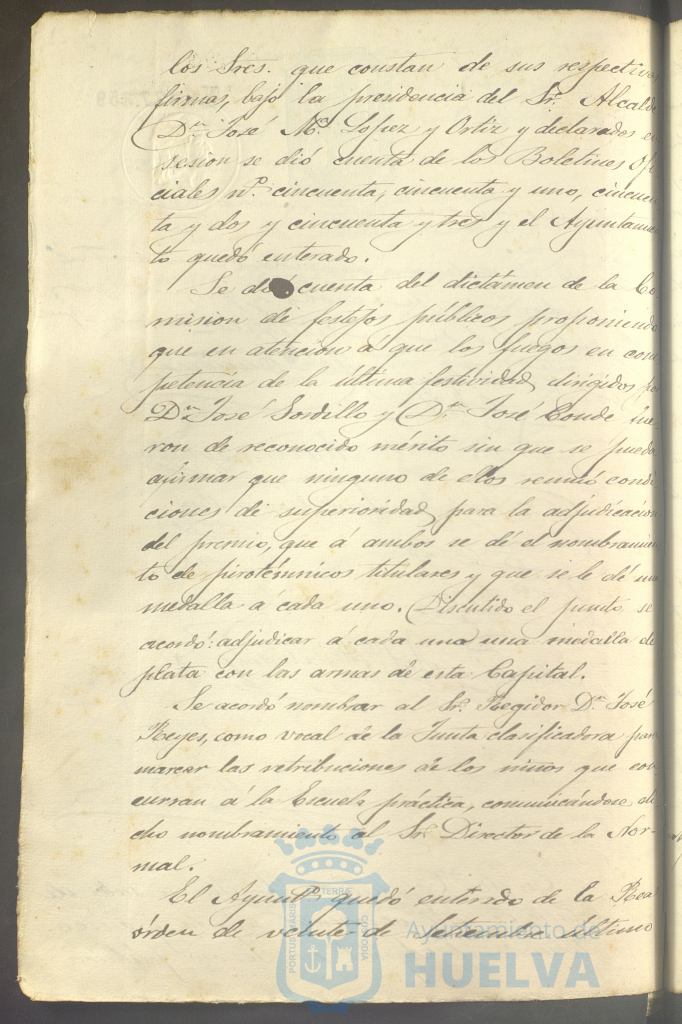 los Sres. que constan de sus respectivas
firmas, bajo la presidencia del Sr. Alcalde
Dn. José Ma. Lopez y Ortiz y declarados en
sesion se dió cuenta de los Boletines Ofi
ciales nos. cincuenta, cincuenta y uno, cincuen
ta y dos y cincuenta y tres y el Ayuntamien
to quedó enterado.
Se dió cuenta del dictámen de la Co
mision de festejos públicos proponiendo
que en atencion a que los fuegos en com
petencia de la última festividad, dirigidos por
Dn. José Sordillo y Dn. José Conde fue
ron de reconocido mérito sin que se pueda
afirmar que ninguno de ellos reunió condi
ciones de superioridad, para la adjudicacion
del premio, que á ambos se dé el nombramien
to de pirotécnicos titulares y que se le dé una
medalla á cada uno. Discutido el punto se
acordó: adjudicar á cada uno una medalla de
plata con las armas de esta Capital.
Se acordó nombrar al Sr. Regidor Dn. José
Reyes, como vocal de la Junta clasificadora para
marcar las retribuciones de los niños que con
curran á la Escuela práctica, comunicándose di
cho nombramiento al Sr. Director de la Nor-
mal.
El Ayunto. quedó enterado de la Real
órden de veinte de Setiembre último
PORTUS MARIS ET TERRÆ CUSTODIA
Ayuntamiento de
HUELVA